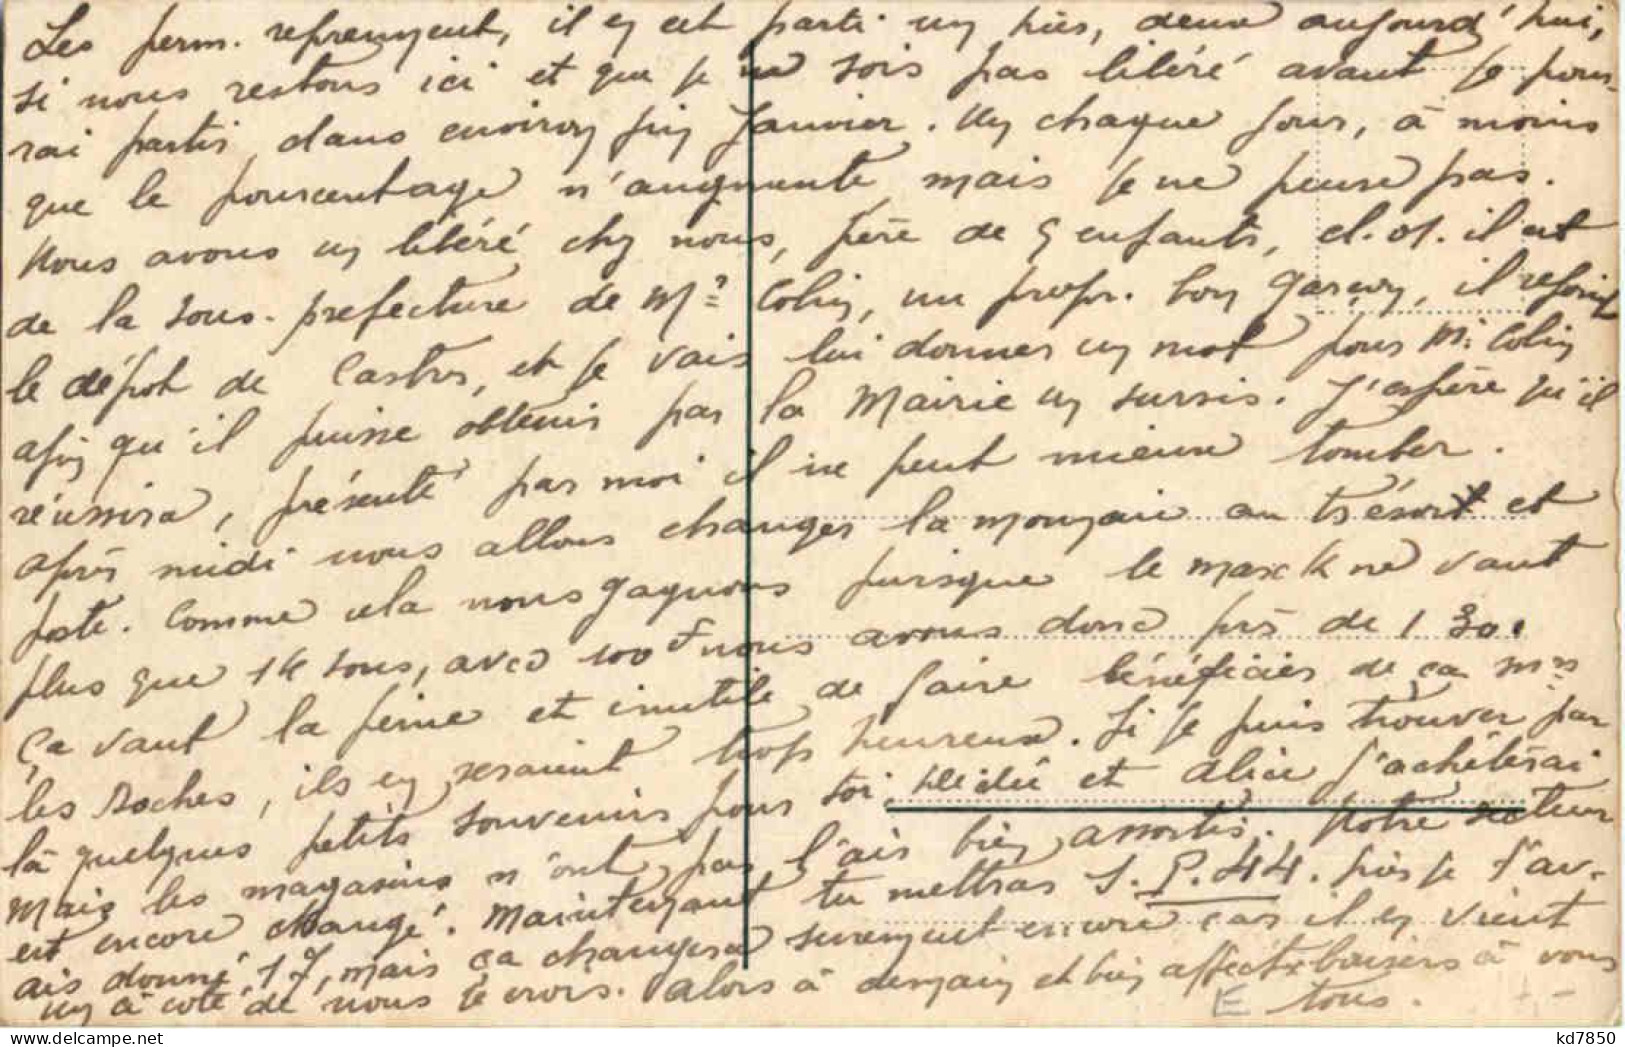 Les perm. reprennent, il y est parti un hier, deux aujourd'hui,
si nous restons ici et que je ne sois pas libéré avant je pour-
rai partir dans environ fin Janvier. Un chaque jour, à moins
que le pourcentage n'augmente mais je ne pense pas.
Nous avons un libéré chez nous, père de 5 enfants, il est
de la sous-prefecture de Mr Colin, un propr. bon garçon, il rejoint
le dépot de Castres, et je vais lui donner un mot pour Mr Colin
afin qu'il puisse obtenir par la Mairie un sursis. J'espère qu'il
réussira, présenté par moi il ne peut mieux tomber.
après midi nous allons changer la monnaie au trésor et
poste. Comme cela nous gagnons puisque le marck ne vaut
plus que 14 sous, avec 100 F nous avons donc près de 130.
ça vaut la peine et inutile de faire bénéficier de ça mrs
les Boches, ils en seraient trop heureux. Si je puis trouver par
là quelques petits souvenirs pour toi, et Alice j'achèterai
Mais les magasins n'ont pas l'air bien assortis. Notre secteur
est encore changé. Maintenant tu mettras S.P. 44. hier je t'av-
ais donné 17, mais ça changera surement encore car il en vient
un à coté de nous je crois. Alors à demain et bien affect baisers à vous
tous.
E
kd7850